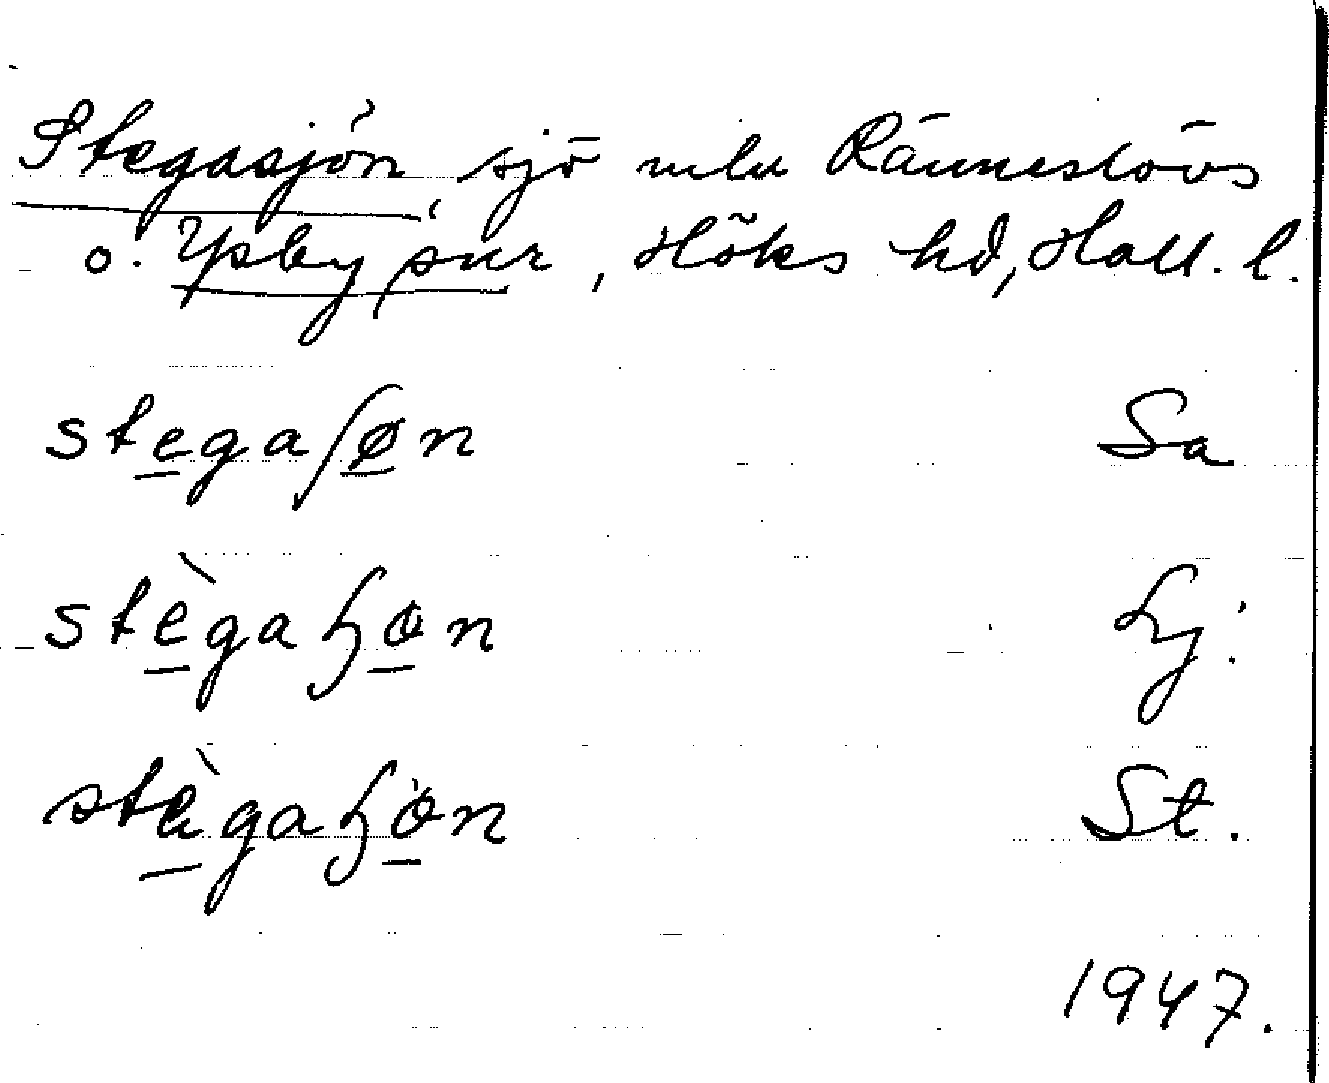 Stegasjön, sjö mln Ränneslövs
o. Ysby snr, Höks hd, Hall. l.
stegaʃøn Sa
stègaɧøn Lj.
stègaɧøn St.
1947.